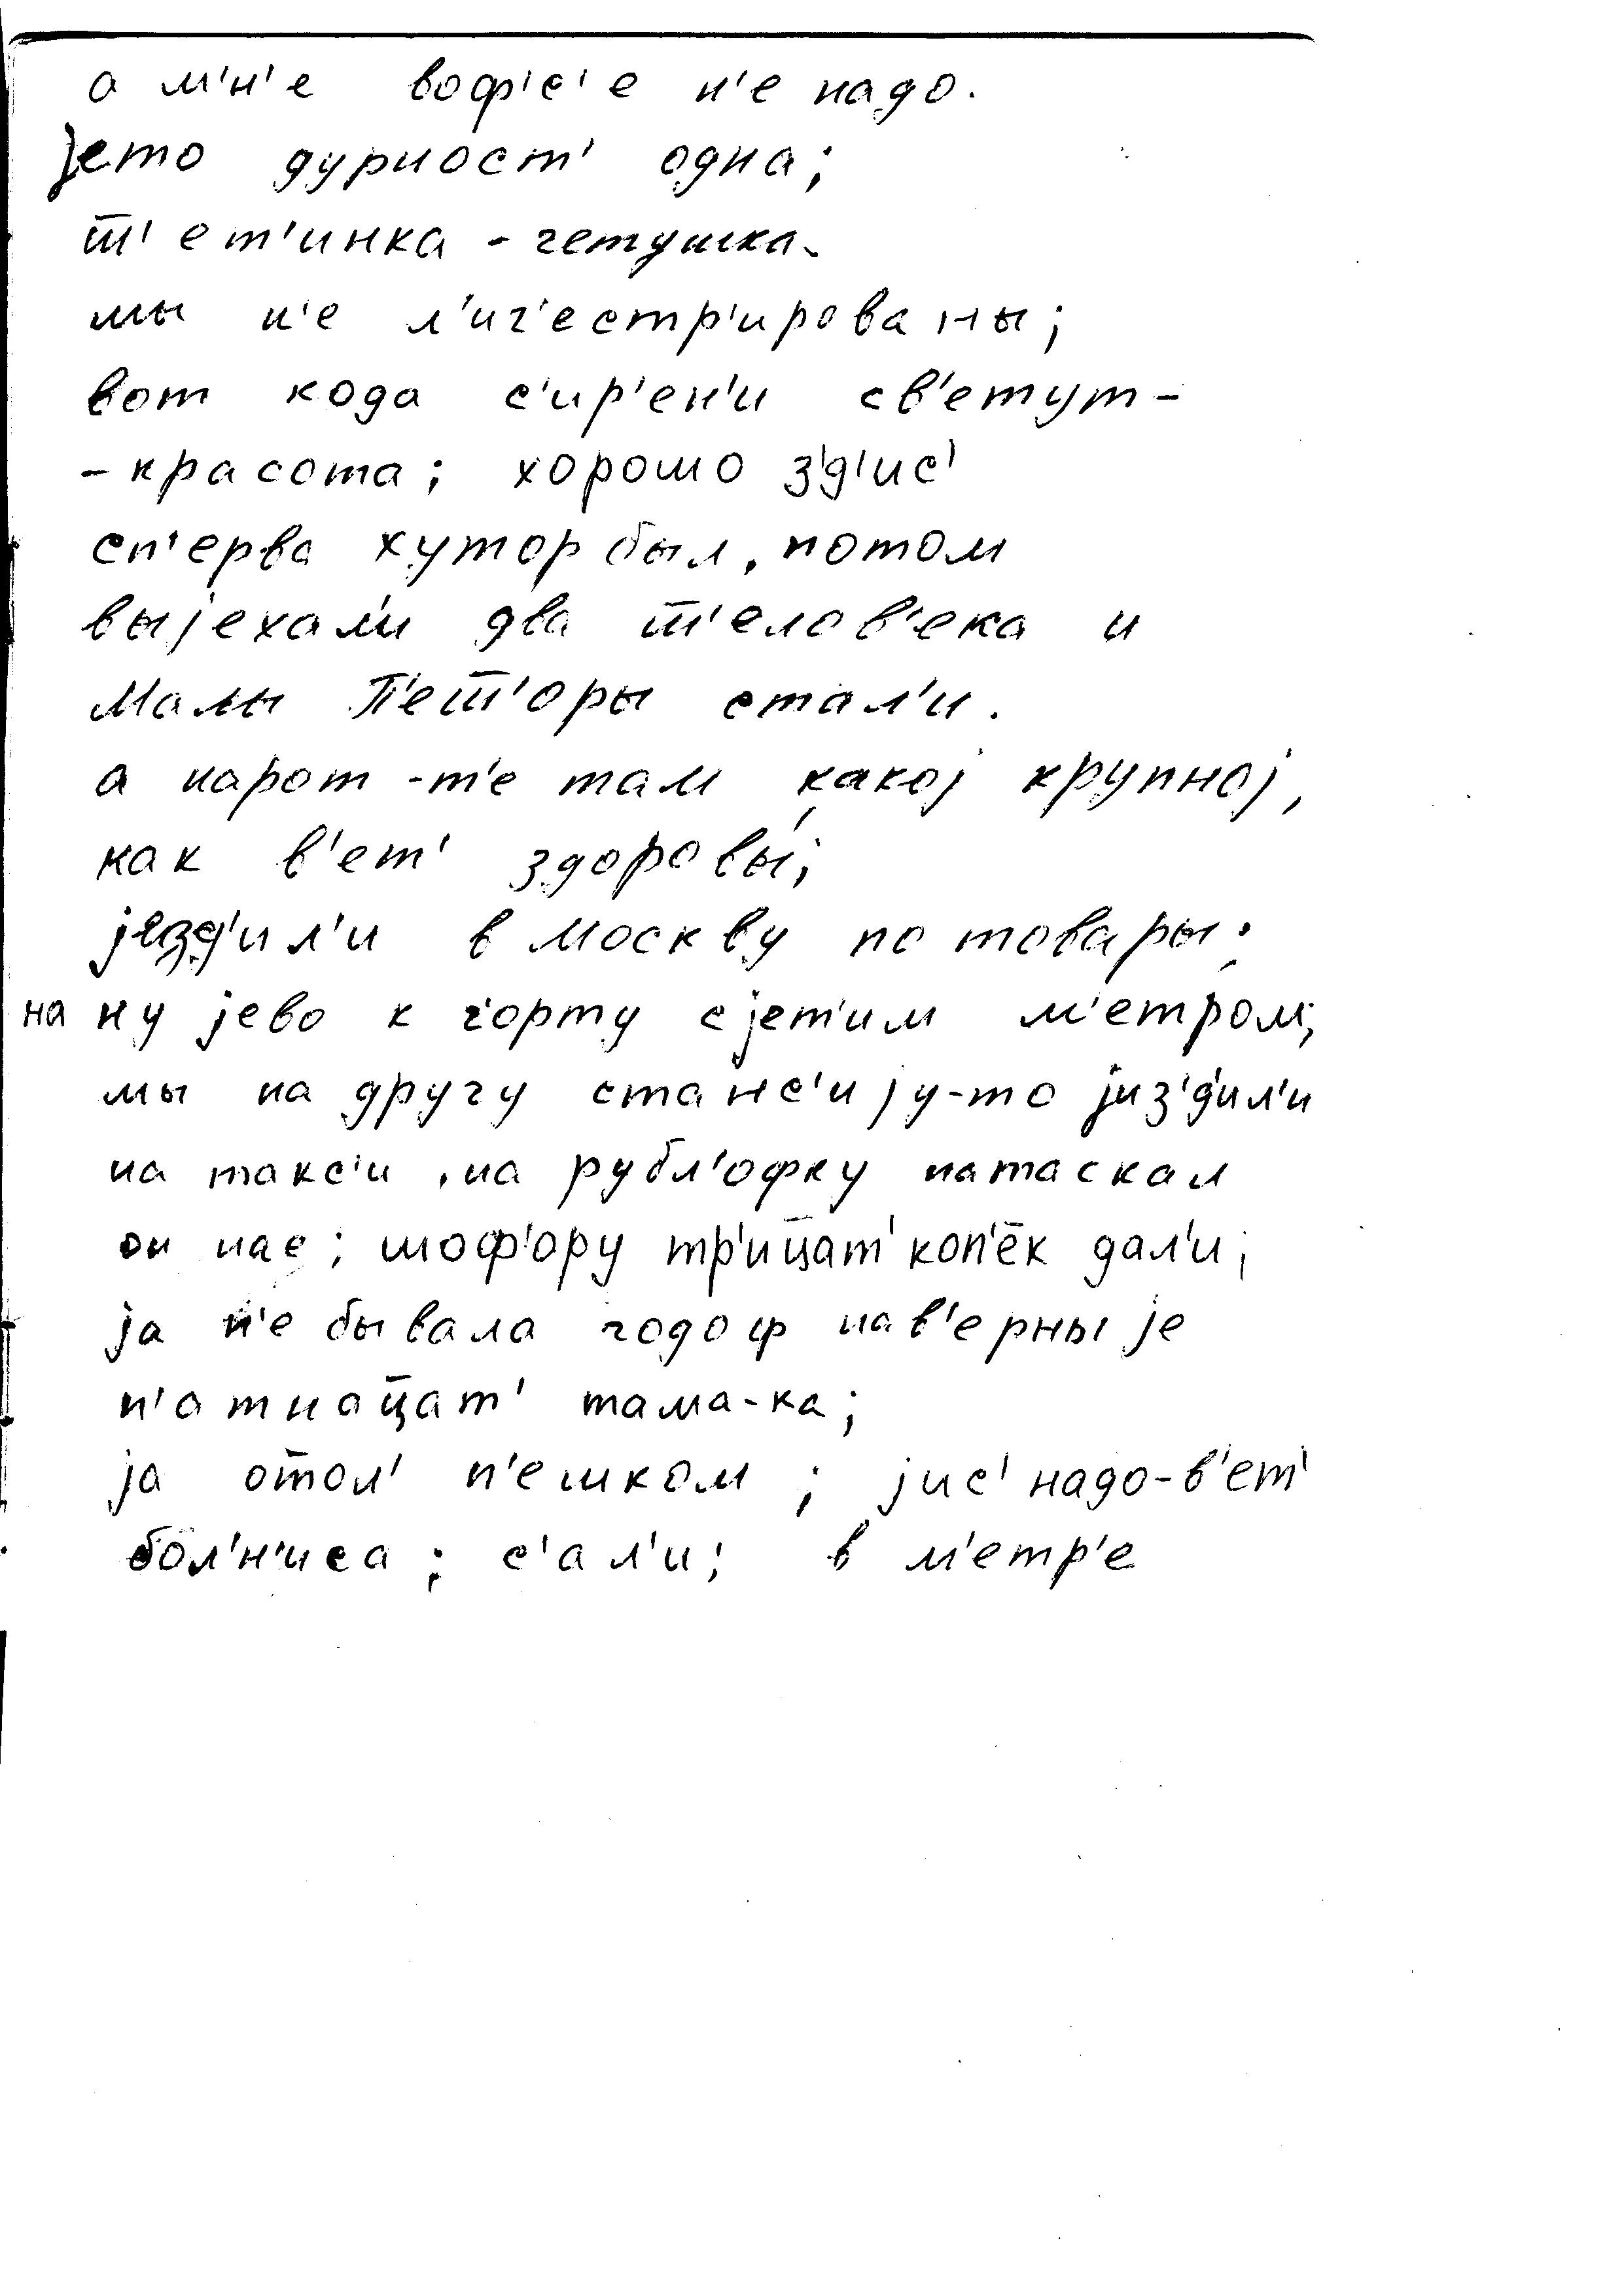 а м'н'е воф'с'е н'е надо.
јето дурност' одна;
т̅'ет'инка - четушка.
мы н'е л'иг'естр'ированы;
вот кода с'ир'ен'и св'етут -
- красота; хорошо з'д'ис'
сп'ерва хутор был, потом
выјехал'и два т̅'елов'ека и
Малы П'ет̅'оры стал'и.
а народ -т'е там какој крупној,
как в'ет' здоровы́;
језд'ил'и в москву по товары;
на ну јево к ч'орту с јет'им м'етром;
мы на другу станс'ију-то јиз'д'ил'и
на такс'и, на рубл'офку натаскал
он нас; шоф'ору тр'иц̅ат' коп'ек дал'и;
ја н'е бывала годоф нав'ерныје
п'атнац̅ат' тама-ка;
ја от̅ол' п'ешком; јис' надо-в'ет'
бол'н'иса; с'ал'и; в м'етр'е